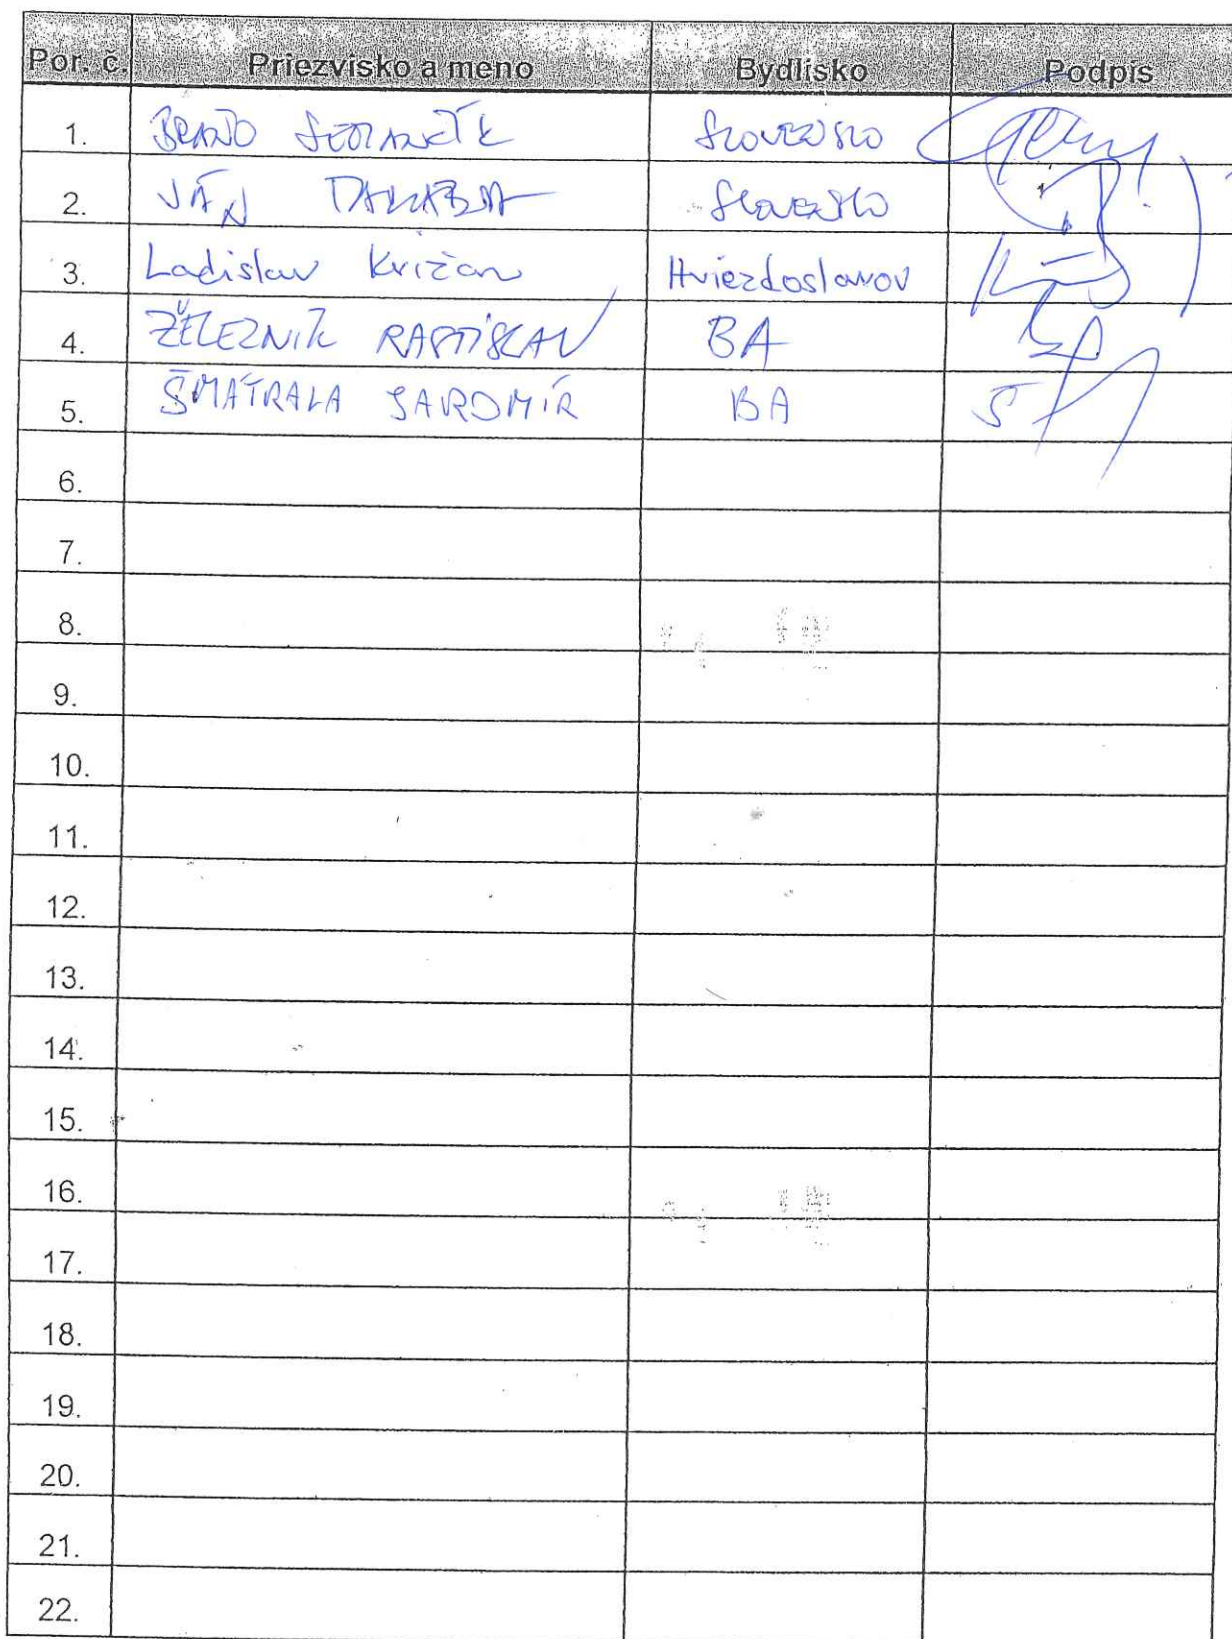 Por. č. Priezvisko a meno Bydlisko Podpis
1. BRAŇO Slovensko
2. JÁN Slovensko
3. Ladislav Križan Hviezdoslavov
4. ŽELEZNÍK RASTISLAV BA
5. ŠMATRALA JAROMÍR BA
6.
7.
8.
9.
10.
11.
12.
13.
14.
15.
16.
17.
18.
19.
20.
21.
22.